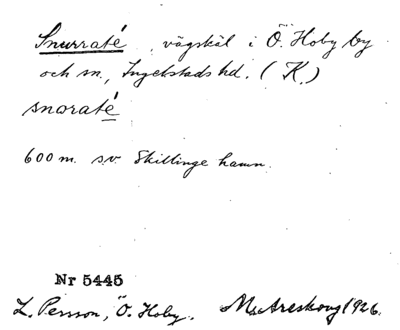 Snurraté , vägskäl i Ö. Hoby by
och sn., Ingelstads hd. (K.)
snoraté
600 m. s.v. Skillinge hamn.
Nr 5445
L. Persson, Ö. Hoby. M. Areskoug 1926.